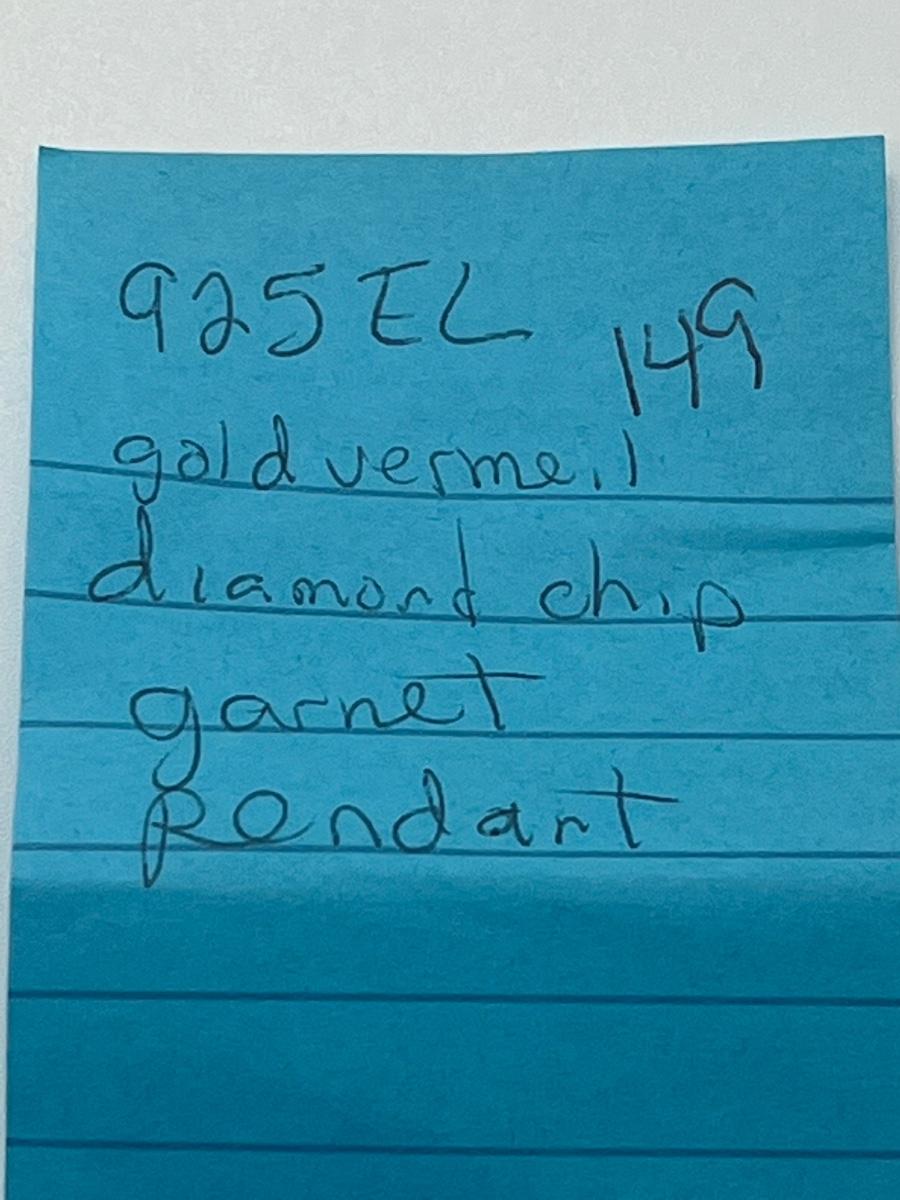 925 EL 149
gold vermeil
diamond chip
garnet
pendant